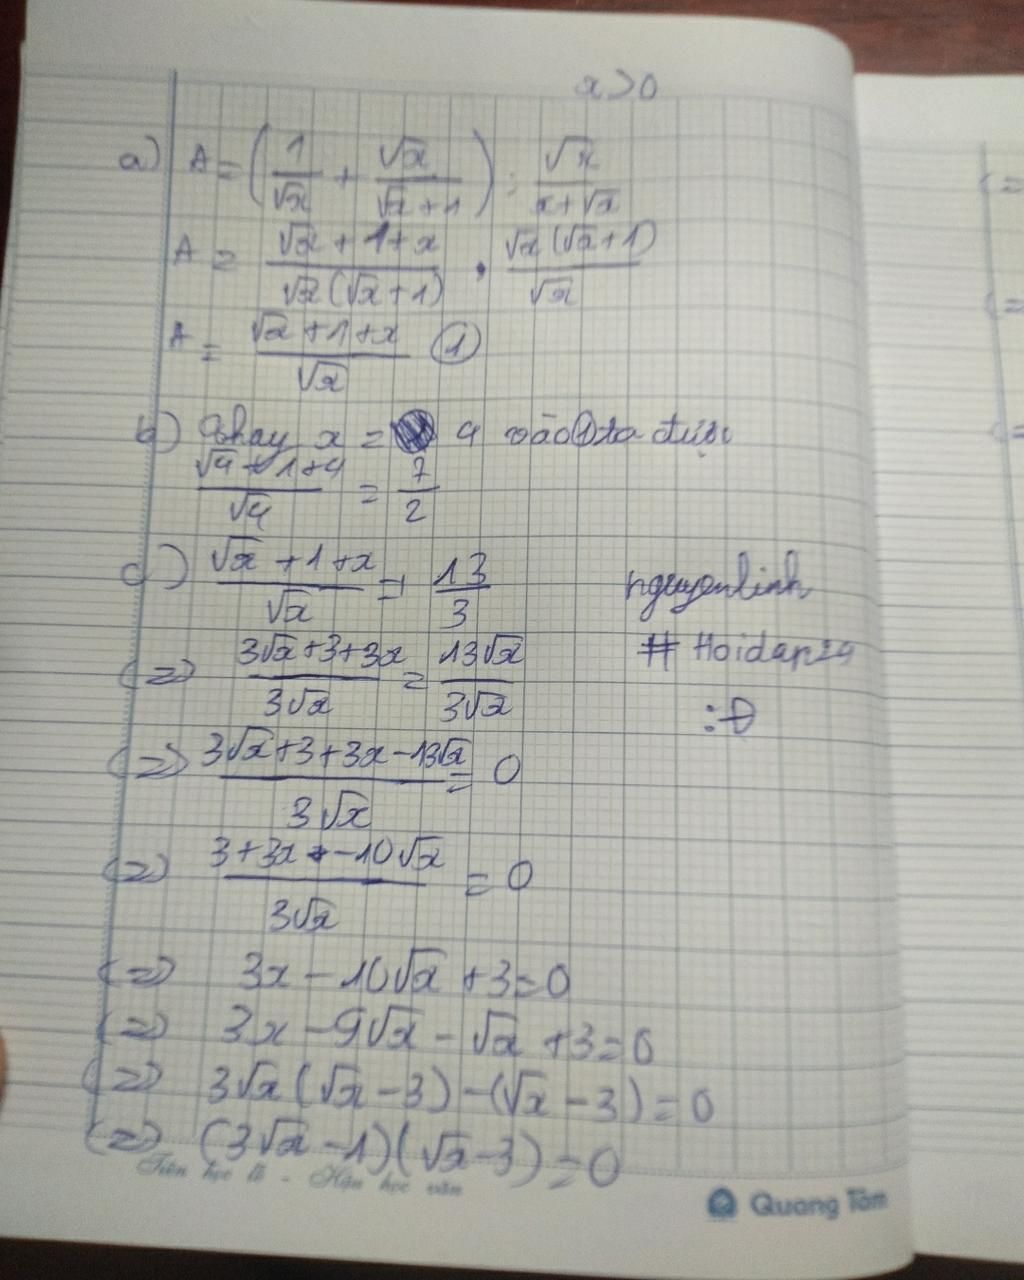 x>0
a) A = (1/√x + √x/(√x+1)) : √x/(x+√x)
A = (√x+1+x)/(√x(√x+1)) . √x(√x+1)/√x
A = (√x+1+x)/√x ①
b) Thay x = 4 vào ① ta được
(√4+1+4)/√4 = 7/2
c) (√x+1+x)/√x = 13/3
nguyenlinh
(=) (3√x+3+3x)/(3√x) = 13√x/(3√x)
# Hoidap24
:Đ
(=) (3√x+3+3x-13√x)/(3√x) = 0
(=) (3+3x-10√x)/(3√x) = 0
(=) 3x-10√x+3=0
(=) 3x-9√x-√x+3=0
(=) 3√x(√x-3)-(√x-3)=0
(=) (3√x-1)(√x-3)=0
Tiên học lễ - Hậu học văn
Quang Tâm